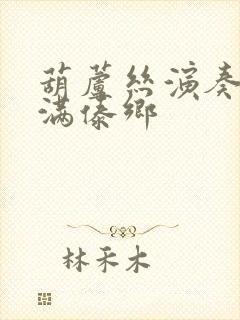 葫蘆絲演奏
滿傣鄉
林禾木